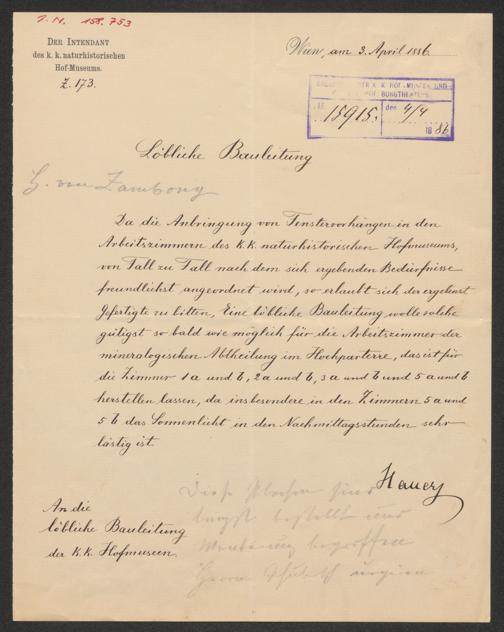 I.N. 158.753
DER INTENDANT
des k. k. naturhistorischen
Hof-Museums.
Z. 173.
Wien, am 3. April 1886.
DER K. K. HOF-MUSEEN UND
HOFBURGTHEATERS
15915. des 4/4
18 86
Löbliche Bauleitung
H. von Zambony
Da die Anbringung von Fenstervorhängen in den
Arbeitszimmern des k. k. naturhistorischen Hofmuseums,
von Fall zu Fall nach dem sich ergebenden Bedürfnisse
freundlichst angeordnet wird, so erlaubt sich der ergebenst
Gefertigte zu bitten, Eine löbliche Bauleitung wolle solche
gütigst so bald wie möglich für die Arbeitszimmer der
mineralogischen Abtheilung im Hochparterre, das ist für
die Zimmer 1 a und b, 2 a und b, 3 a und b und 5 a und b
herstellen lassen, da insbesondere in den Zimmern 5 a und
5 b das Sonnenlicht in den Nachmittagsstunden sehr
lästig ist.
Hauer
Diese sind
längst bestellt und
begriffen
Herrn urgiren
An die
löbliche Bauleitung
der k. k. Hofmuseen